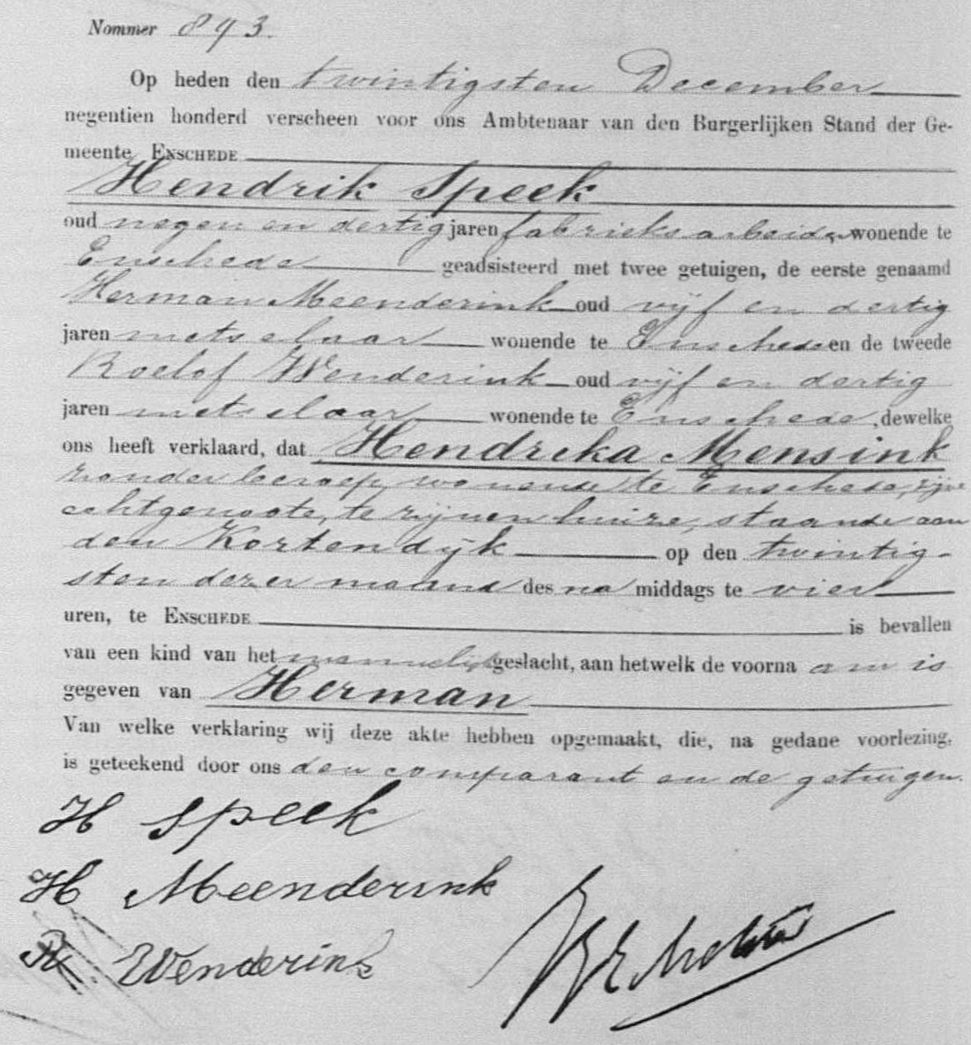 Nommer 893.
Op heden den twintigsten December
negentien honderd verscheen voor ons Ambtenaar van den Burgerlijken Stand der Ge-
meente ENSCHEDE
Hendrik Speek
oud negen en dertig jaren fabrieksarbeider wonende te
Enschede geadsisteerd met twee getuigen, de eerste genaamd
Herman Meenderink oud vijf en dertig
jaren metselaar wonende te Enschede en de tweede
Roelof Wenderink oud vijf en dertig
jaren metselaar wonende te Enschede, dewelke
ons heeft verklaard, dat Hendreka Mensink
zonder beroep, wonende te Enschede, zijne
echtgenoote, te zijnen huize, staande aan
den Kortendijk op den twintig-
sten dezer maand des na middags te vier
uren, te ENSCHEDE is bevallen
van een kind van het mannelijk geslacht, aan hetwelk de voorna am is
gegeven van Herman
Van welke verklaring wij deze akte hebben opgemaakt, die, na gedane voorlezing,
is geteekend door ons den comparant en de getuigen.
H Speek
H Meenderink
R Wenderink